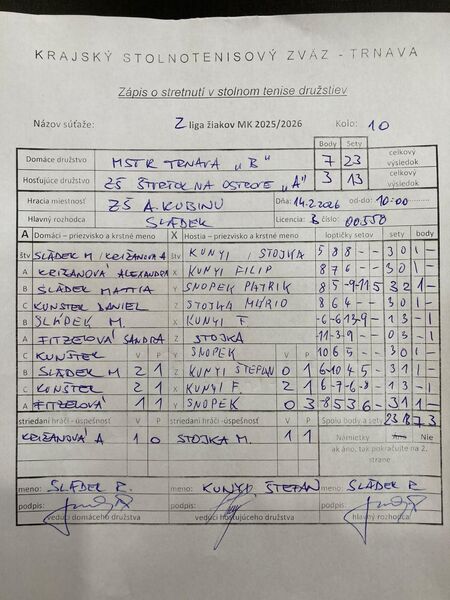 KRAJSKÝ STOLNOTENISOVÝ ZVÄZ - TRNAVA
Zápis o stretnutí v stolnom tenise družstiev
Názov súťaže: Z liga žiakov MK 2025/2026 Kolo: 10
Body Sety
Domáce družstvo MSTK TRNAVA "B" 7 23 celkový výsledok
Hosťujúce družstvo ZŠ ŠTVRTOK NA OSTROVE "A" 3 13 celkový výsledok
Hracia miestnosť ZŠ A. KUBINU Dňa: 14.2.2026 od-do: 10:00-
Hlavný rozhodca SLÁDEK Licencia: B číslo: 00550
A Domáci - priezvisko a krstné meno X Hostia - priezvisko a krstné meno loptičky setov sety body
štv SLÁDEK M / KRIŽANOVÁ A štv KUNYI / STOJKA 5 8 8 - - 3 0 1 -
A KRIŽANOVÁ ALEXANDRA X KUNYI FILIP 8 7 6 - - 3 0 1 -
B SLÁDEK MATTIA Y SNOPEK PATRIK 8 5 -9 -11 5 3 2 1 -
C KUNŠTEK DANIEL Z STOJKA MÁRIO 8 6 4 - - 3 0 1 -
B SLÁDEK M. X KUNYI F -6 -6 13 -9 - 1 3 - 1
A FITZELOVÁ SANDRA Z STOJKA -11 -3 -9 - - 0 3 - 1
C KUNŠTEK V P Y SNOPEK V P 10 6 5 - - 3 0 1 -
B SLÁDEK M 2 1 Z KUNYI ŠTEFAN 0 1 -6 10 4 5 - 3 1 1 -
C KUNŠTEK 2 1 X KUNYI F. 2 1 6 -7 -6 -8 - 1 3 - 1
A FITZELOVÁ 1 1 Y SNOPEK 0 3 -8 5 3 6 - 3 1 1 -
striedaní hráči - úspešnosť striedaní hráči - úspešnosť Spolu body a sety 23 13 7 3
KRIŽANOVÁ A 1 0 STOJKA M. 1 1 Námietky Nie
ak áno, tak pokračujte na 2. strane
meno: SLÁDEK R. meno: KUNYI ŠTEFAN meno: SLÁDEK R
podpis: podpis: podpis:
vedúci domáceho družstva vedúci hosťujúceho družstva hlavný rozhodca